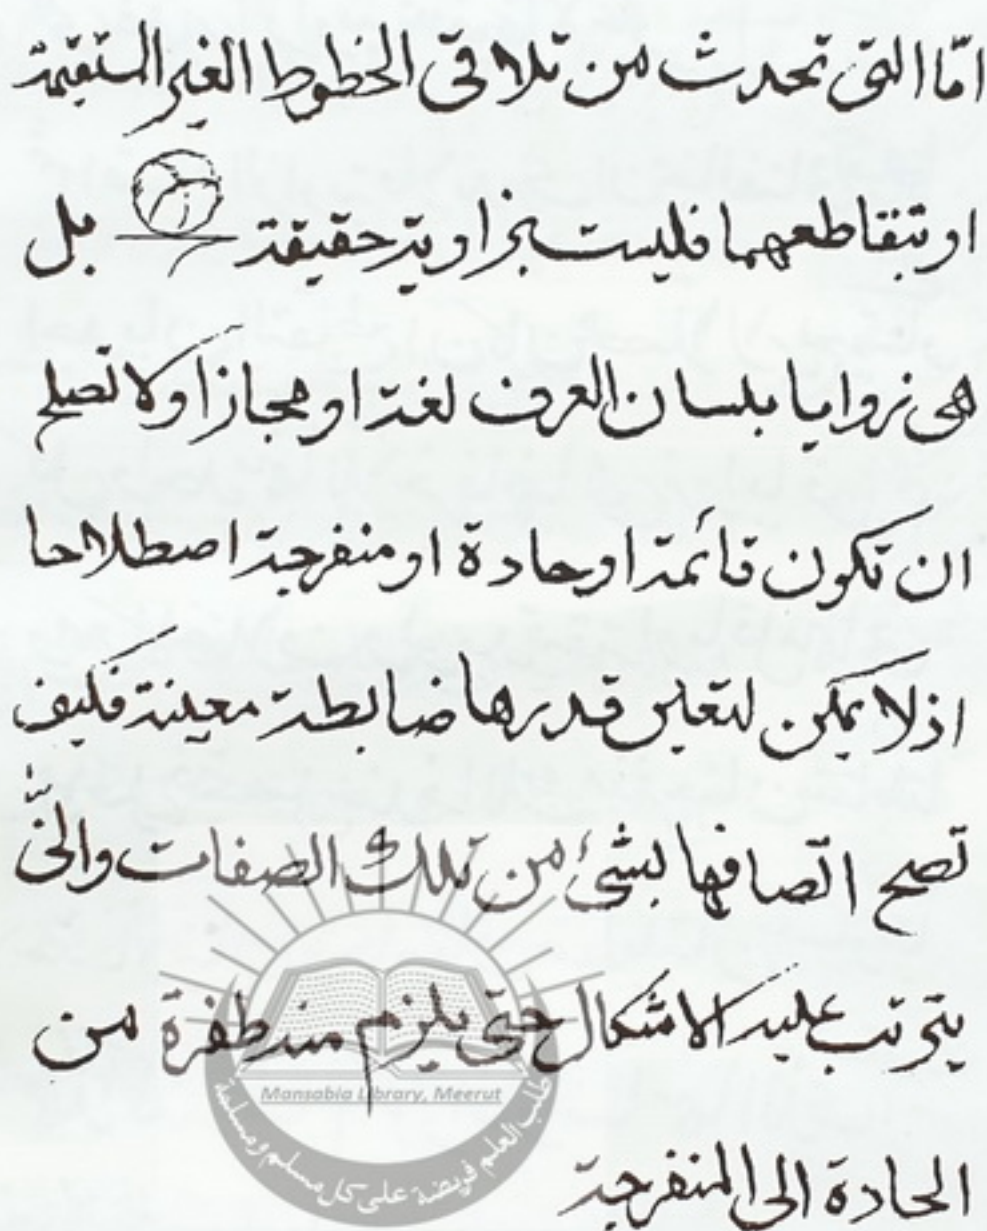 امّا التی تحدث من تلاقی الخطوط الغیر المستقیمة
او تبقاطعهما فلیست بزاویة حقیقة بل
هی زوایا بلسان العرف لغة او مجازاً ولا تصلح
ان تکون قائمة او حادة او منفرجة اصطلاحا
اذ لا یمکن لتعین قدرها ضابطة معینة فکیف
تصح اتّصافها بشئ من تلك الصفات وانّی
یترتب علیه الاشکال حتی یلزم منه طفرة من
الحادة الی المنفرجة
Mansabia Library, Meerut
طلب العلم فريضة على كل مسلم ومسلمة